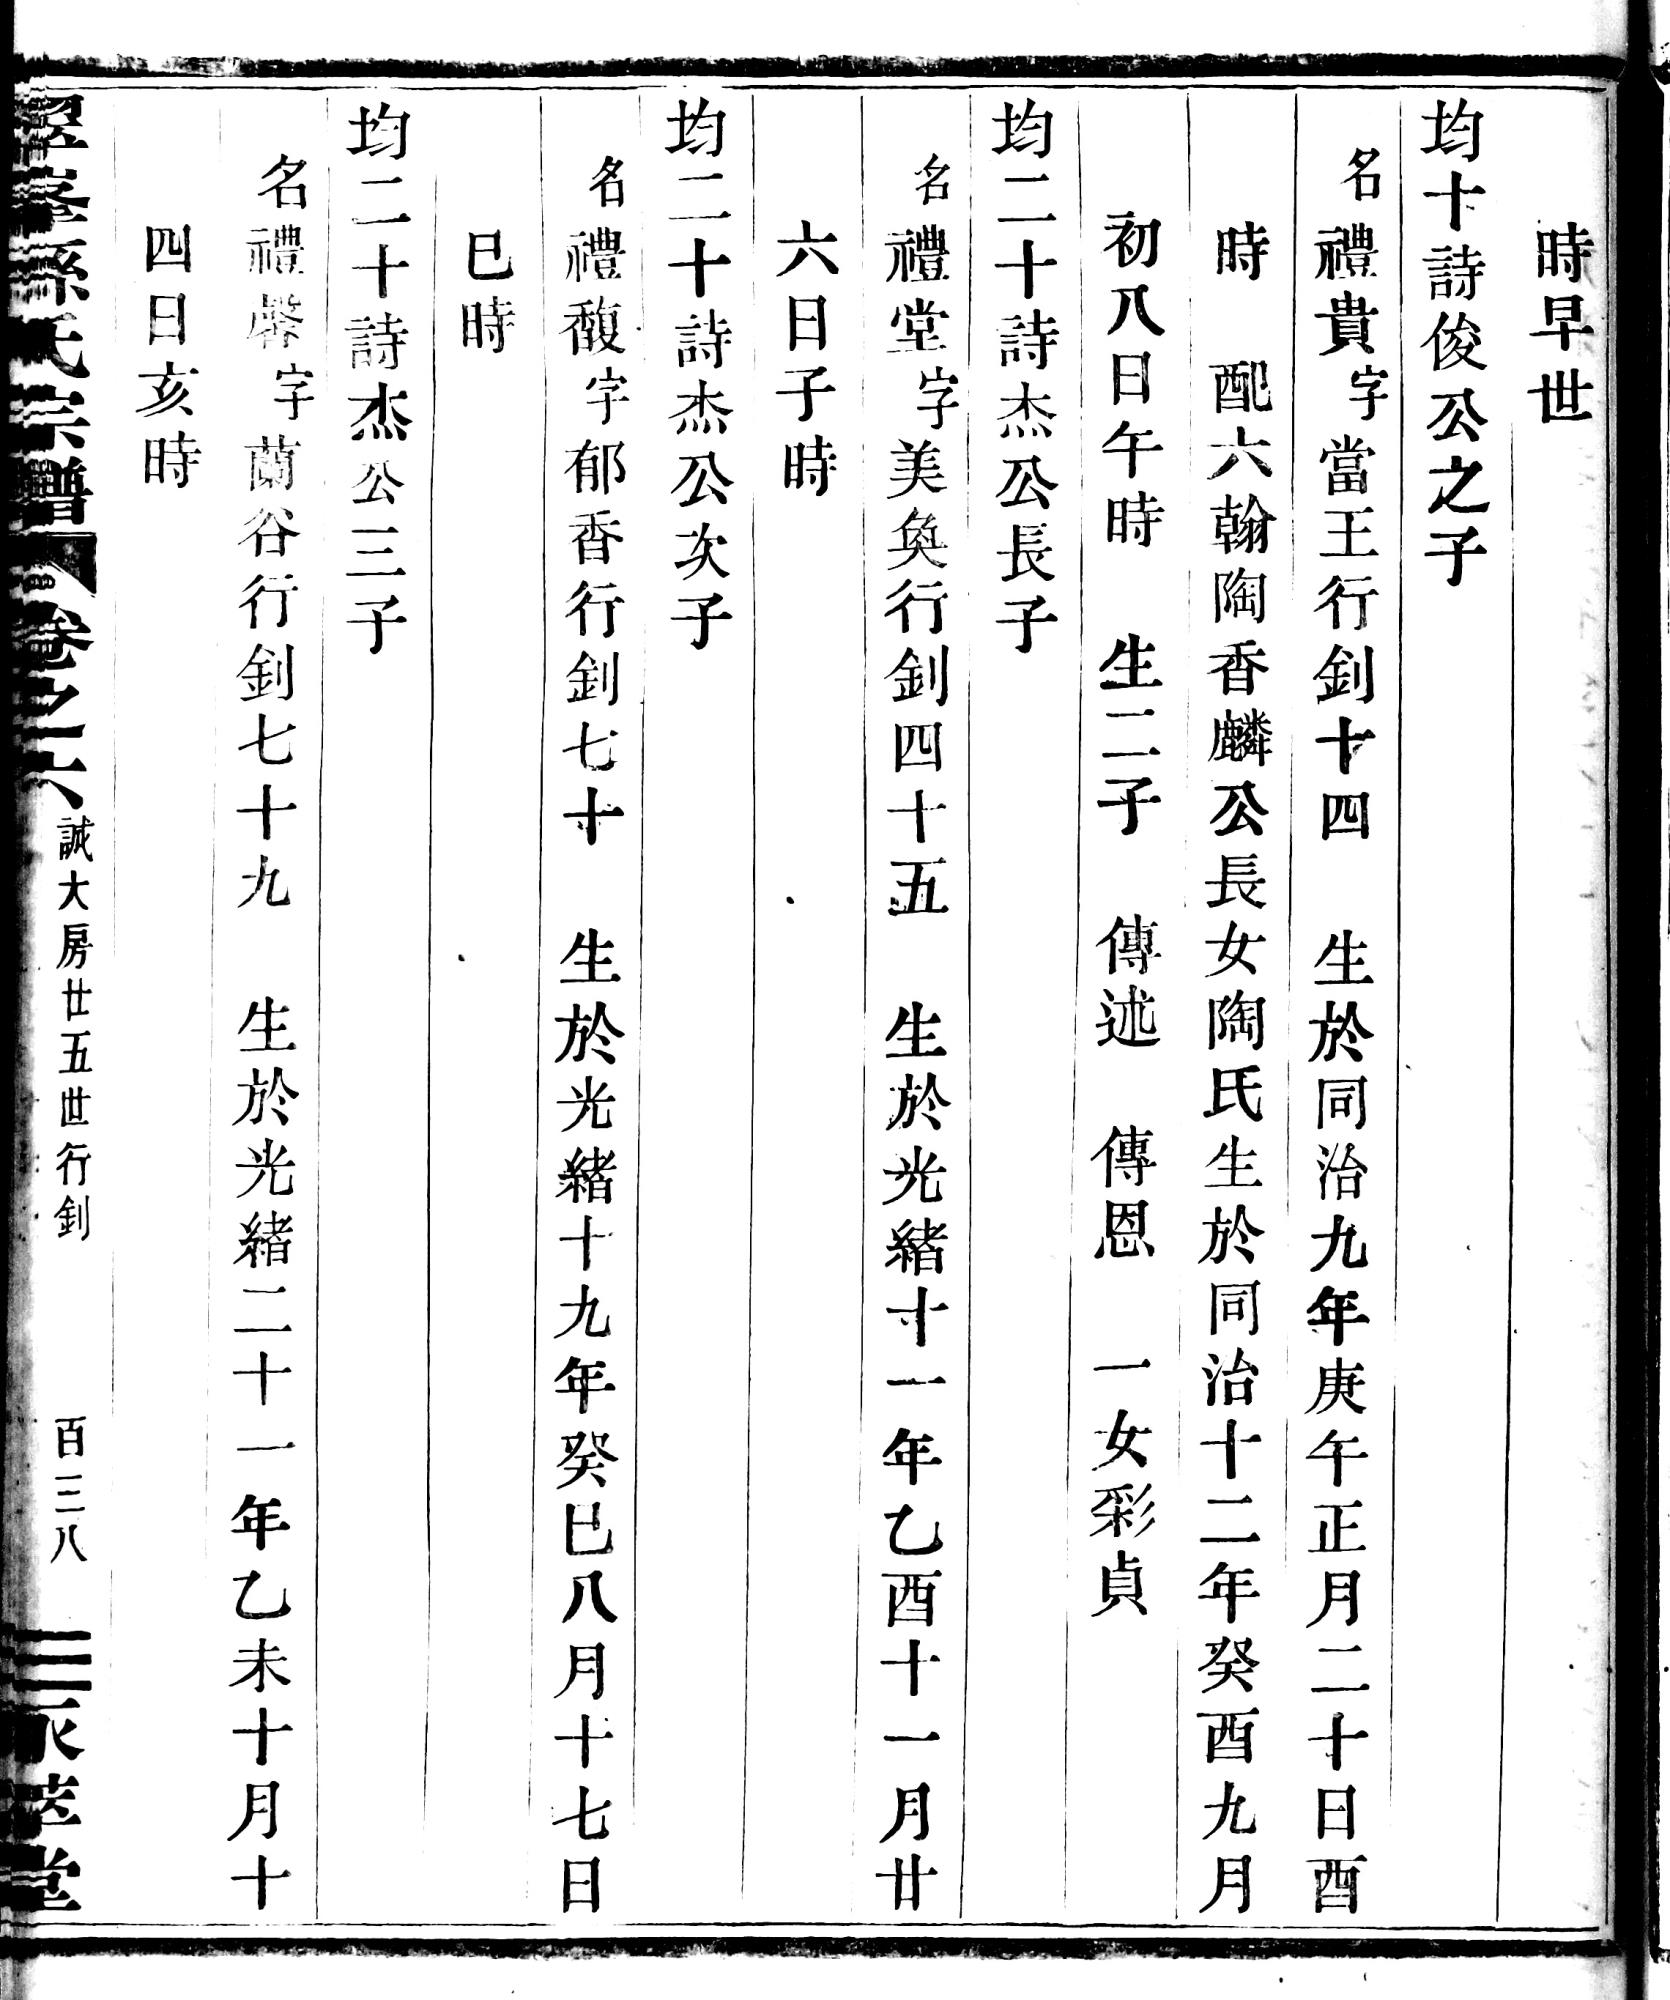 時早世
均十詩俊公之子
名禮貴字當王行釗十四　生於同治九年庚午正月二十日酉
時　配六翰陶香麟公長女陶氏生於同治十二年癸酉九月
初八日午時　生二子　傳述　傳恩　一女彩貞
均二十詩杰公長子
名禮堂字美奐行釗四十五　生於光緒十一年乙酉十一月廿
六日子時
均二十詩杰公次子
名禮馥字郁香行釗七十　生於光緒十九年癸巳八月十七日
巳時
均二十詩杰公三子
名禮馨字蘭谷行釗七十九　生於光緒二十一年乙未十月十
四日亥時
孫氏宗譜　卷之六　誠大房廿五世行釗　百三八　堂